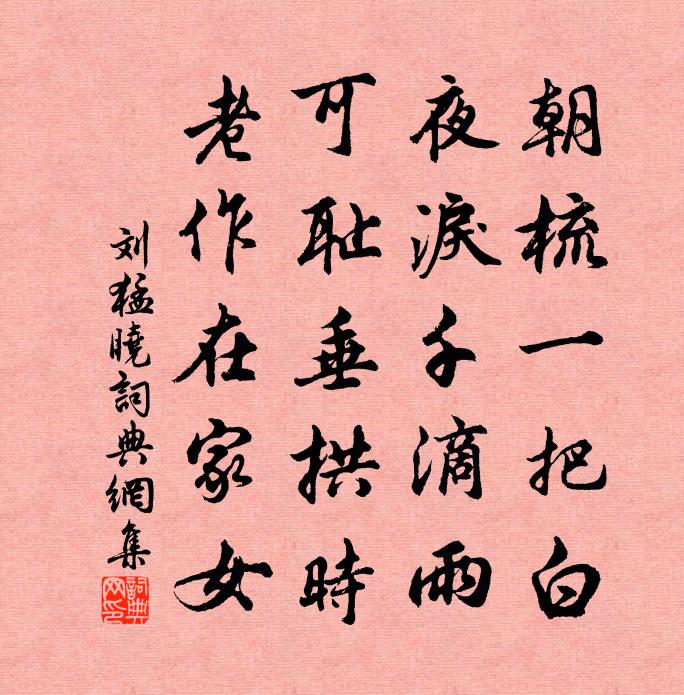 朝梳一把白
夜淚千滴雨
可耻垂拱時
老作在家女
刘猛曉詞典網集
詞典网印